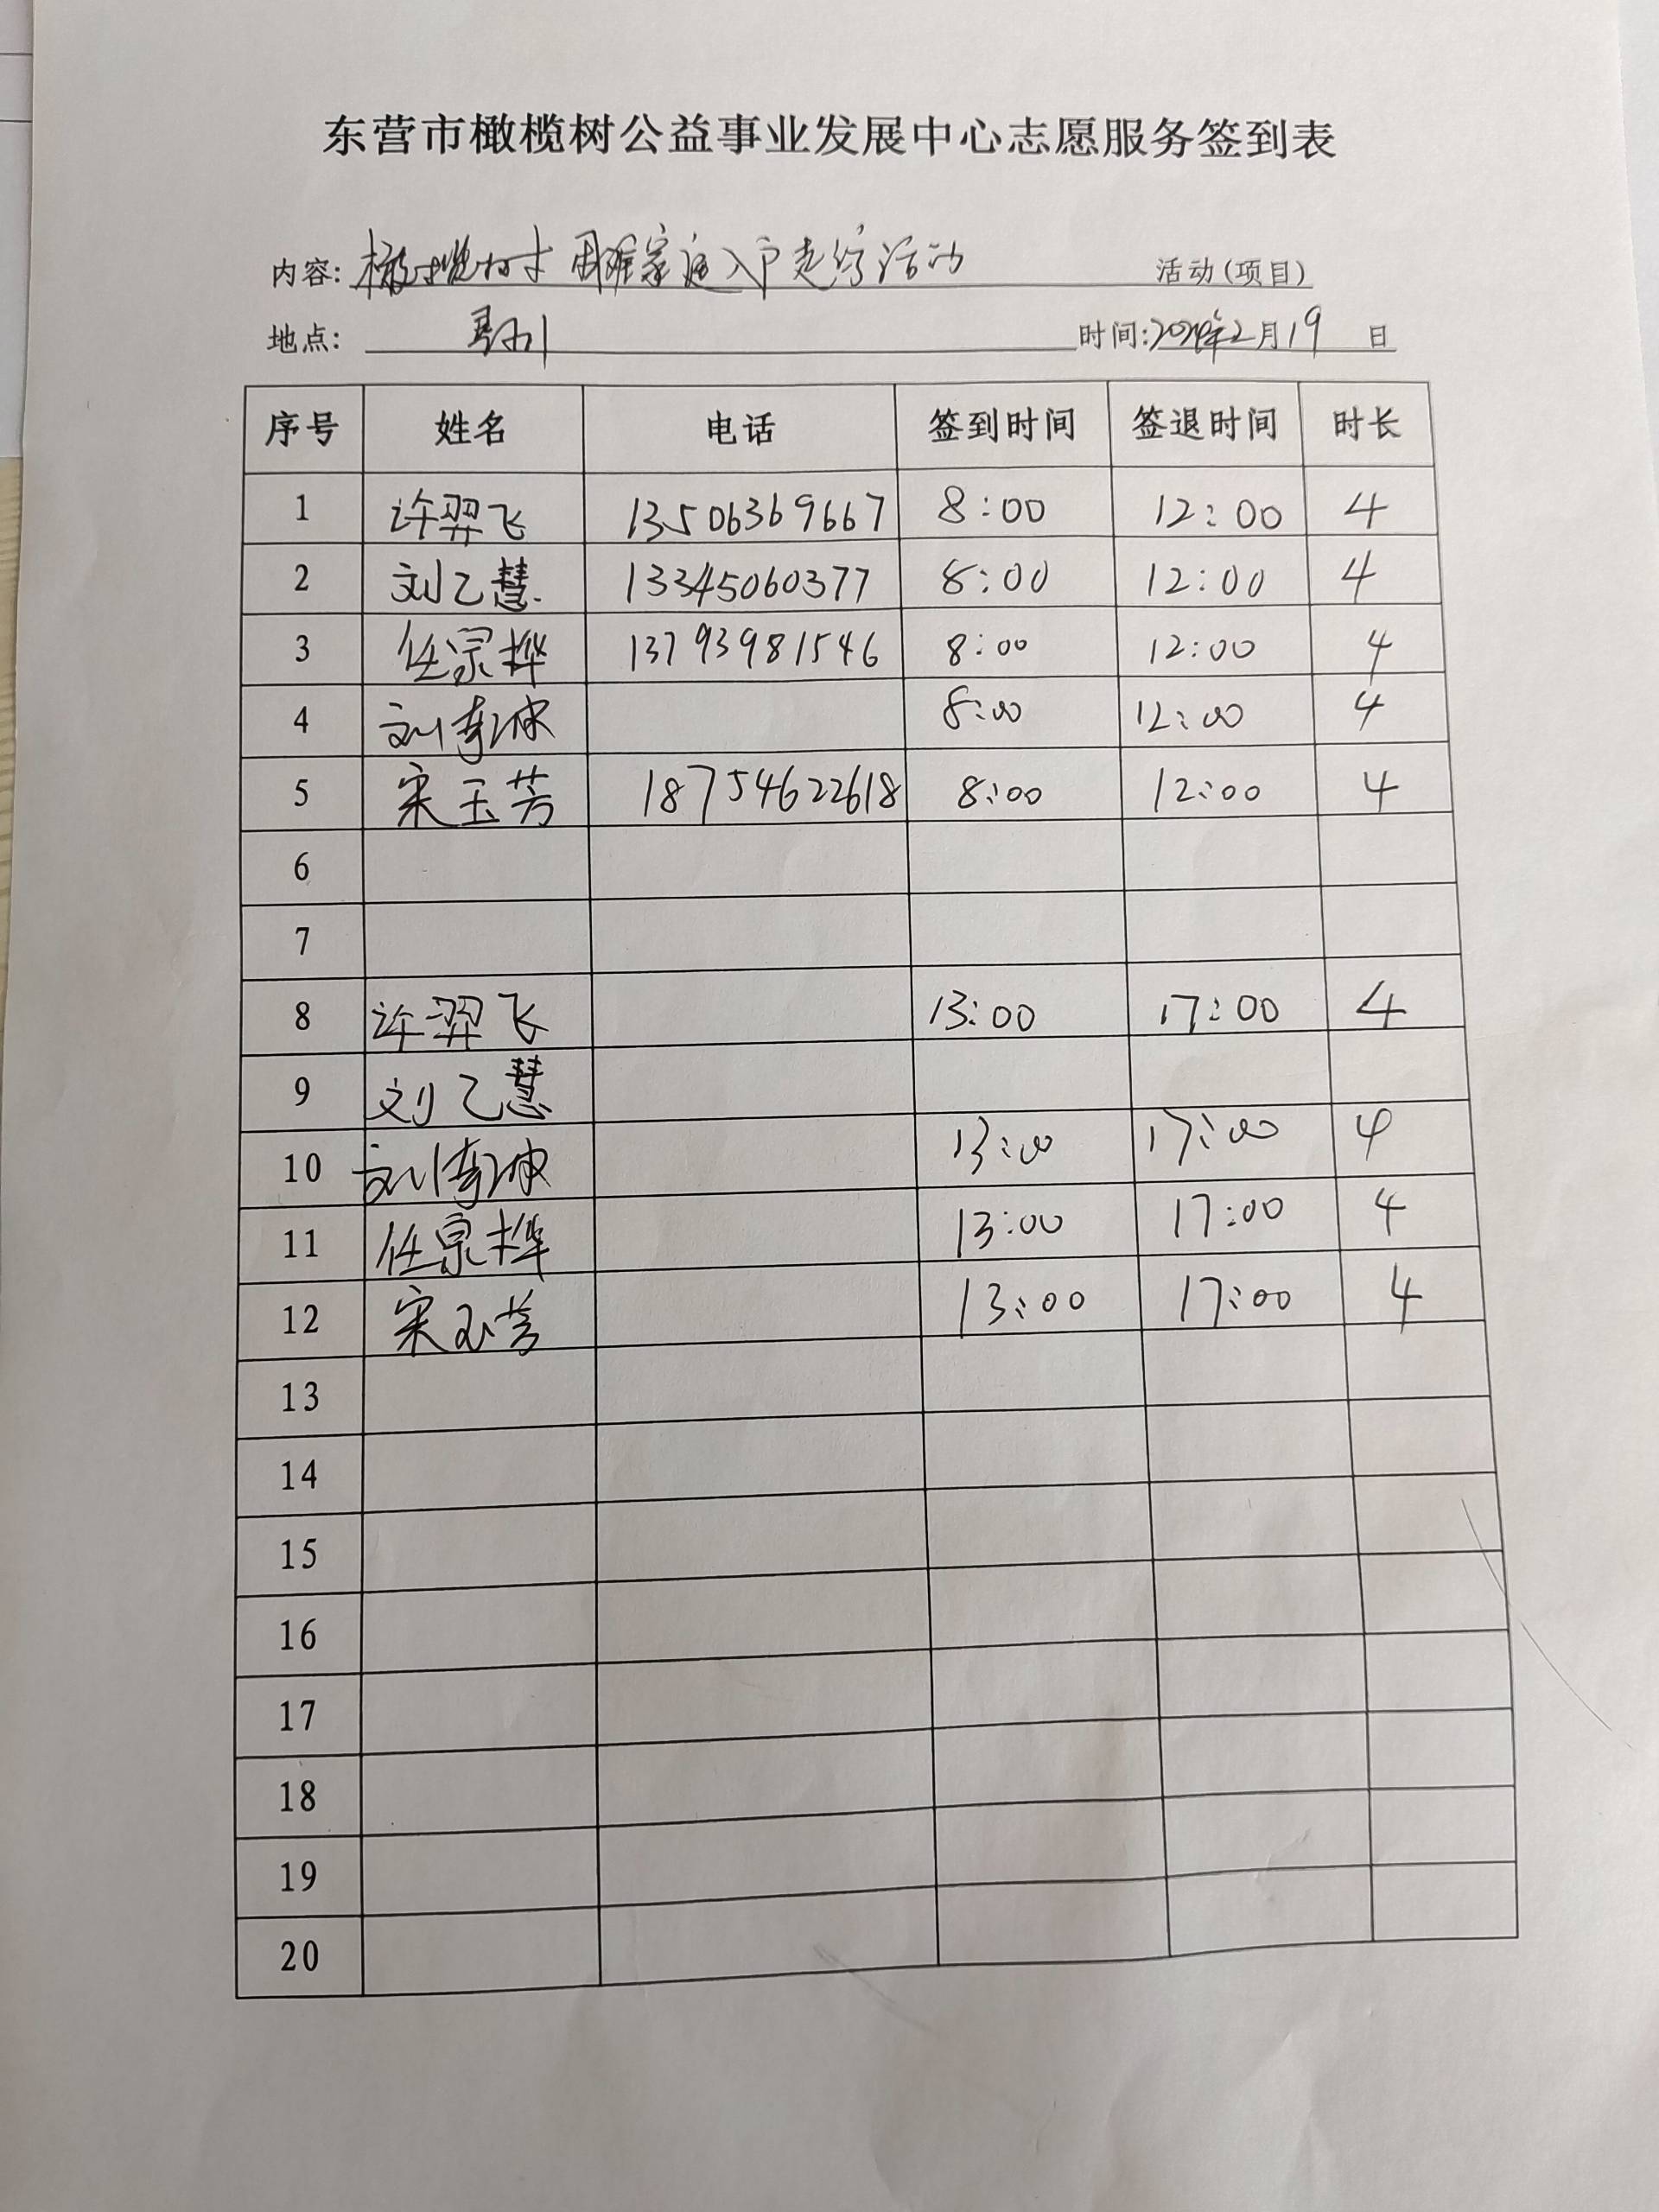 东营市橄榄树公益事业发展中心志愿服务签到表
内容: 橄榄树困难家庭入户走访活动 活动(项目)
地点: 垦利 时间:2024年2月19日
序号 姓名 电话 签到时间 签退时间 时长
1 许羿飞 13506369667 8:00 12:00 4
2 刘乙慧 13345060377 8:00 12:00 4
3 任宗桦 13793981546 8:00 12:00 4
4 刘 8:00 12:00 4
5 宋玉芳 18754622618 8:00 12:00 4
6
7
8 许羿飞 13:00 17:00 4
9 刘乙慧
10 刘 13:00 17:00 4
11 任宗桦 13:00 17:00 4
12 宋玉芳 13:00 17:00 4
13
14
15
16
17
18
19
20